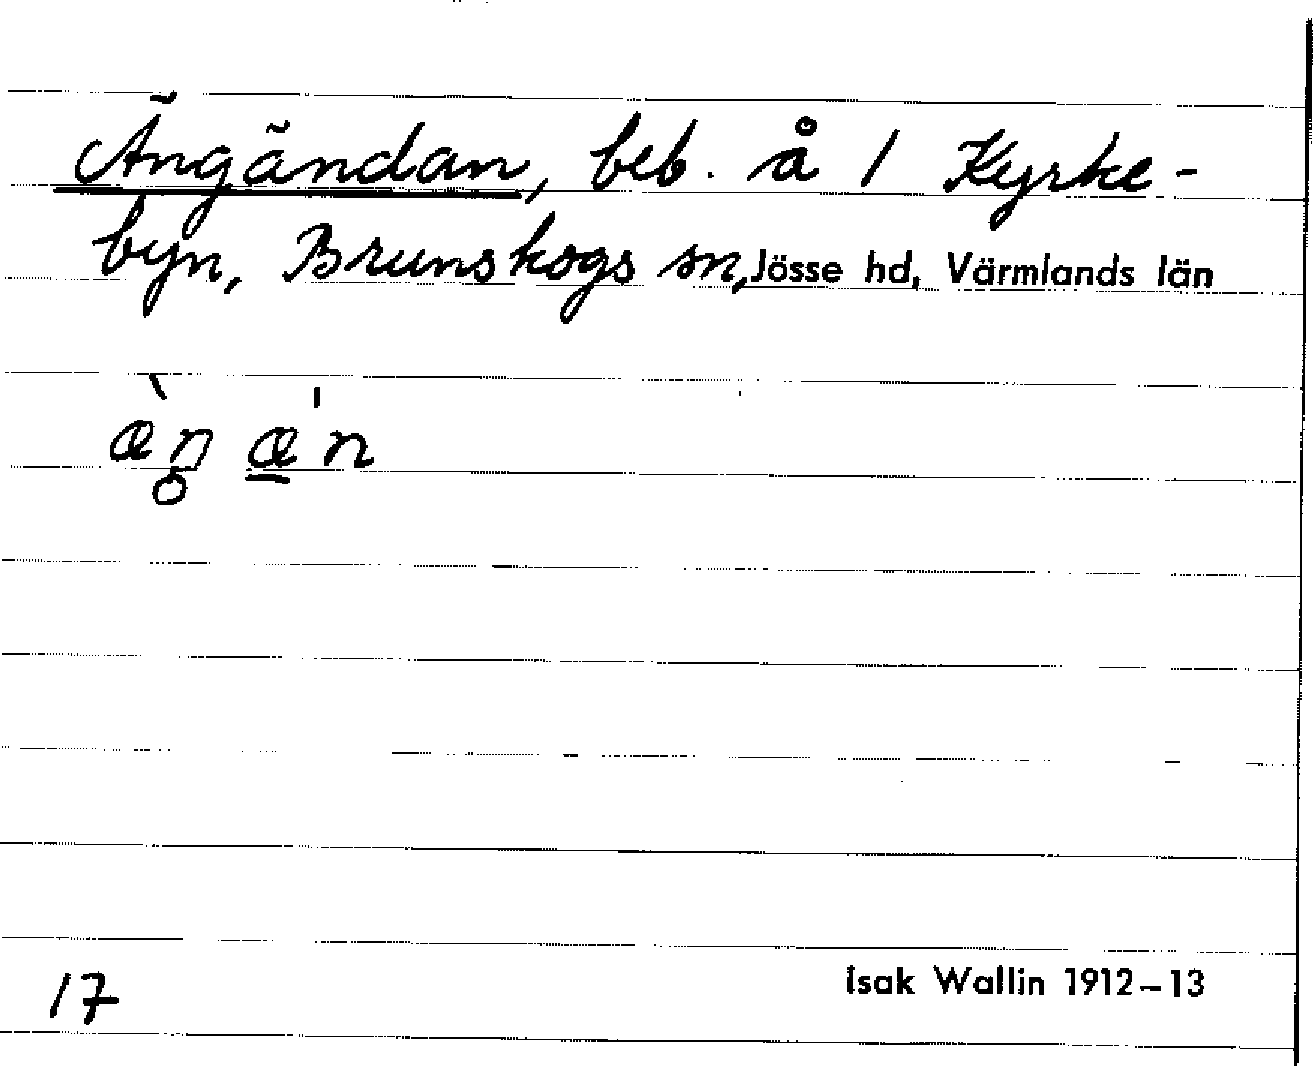 Ängändan, beb. å 1 Kyrke-
byn, Brunskogs sn, Jösse hd, Värmlands län
17
Isak Wallin 1912–13